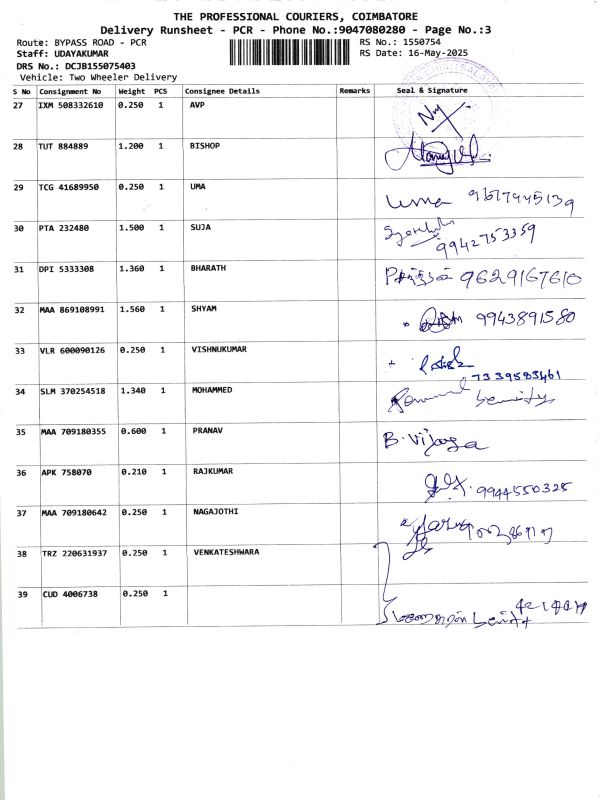 THE PROFESSIONAL COURIERS, COIMBATORE
Delivery Runsheet - PCR - Phone No.:9047080280 - Page No.:3
Route: BYPASS ROAD - PCR
RS No.: 1550754
Staff: UDAYAKUMAR
RS Date: 16-May-2025
DRS No.: DCJB155075403
Vehicle: Two Wheeler Delivery
S No Consignment No Weight PCS Consignee Details Remarks Seal & Signature
27 IXM 508332610 0.250 1 AVP
28 TUT 884889 1.200 1 BISHOP
29 TCG 41689950 0.250 1 UMA uma
30 PTA 232480 1.500 1 SUJA 9942753359
31 DPI 5333308 1.360 1 BHARATH 9629167610
32 MAA 869108991 1.560 1 SHYAM 9943891580
33 VLR 600090126 0.250 1 VISHNUKUMAR
7339583461
34 SLM 370254518 1.340 1 MOHAMMED
35 MAA 709180355 0.600 1 PRANAV B. Vijaya
36 APK 758070 0.210 1 RAJKUMAR 9944550325
37 MAA 709180642 0.250 1 NAGAJOTHI
38 TRZ 220631937 0.250 1 VENKATESHWARA
39 CUD 4006738 0.250 1